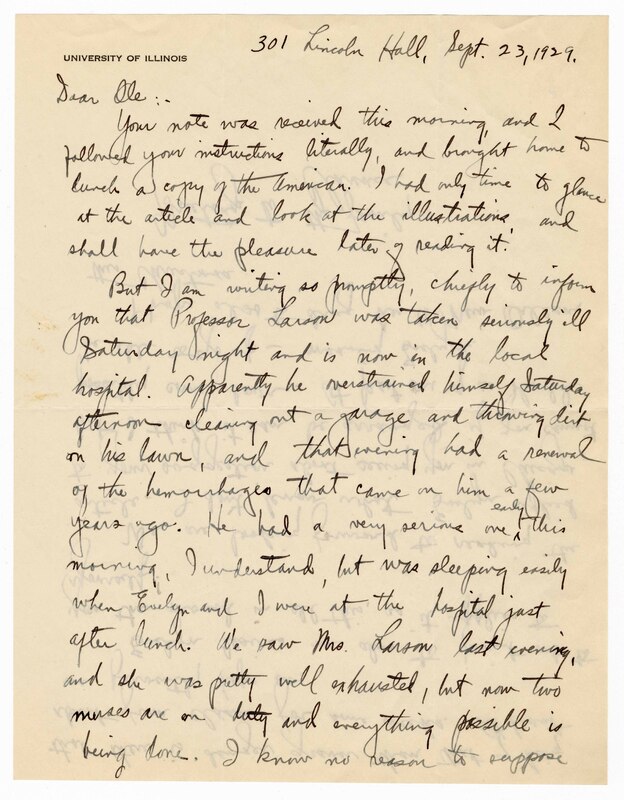 301 Lincoln Hall, Sept. 23, 1929.
UNIVERSITY OF ILLINOIS
Dear Ole:-
Your note was received this morning, and I
followed your instructions literally, and brought home to
lunch a copy of the American. I had only time to glance
at the article and look at the illustrations, and
shall have the pleasure later of reading it.
But I am writing so promptly, chiefly to inform
you that Professor Larson was taken seriously ill
Saturday night and is now in the local
hospital. Apparently he overstrained himself Saturday
afternoon cleaning out a garage and throwing dirt
on his lawn, and that evening had a renewal
of the hemorrhages that came on him a few
years ago. He had a very serious one early this
morning, I understand, but was sleeping easily
when Evelyn and I were at the hospital just
after lunch. We saw Mrs. Larson last evening,
and she was pretty well exhausted, but now two
nurses are on duty and everything possible is
being done. I know no reason to suppose